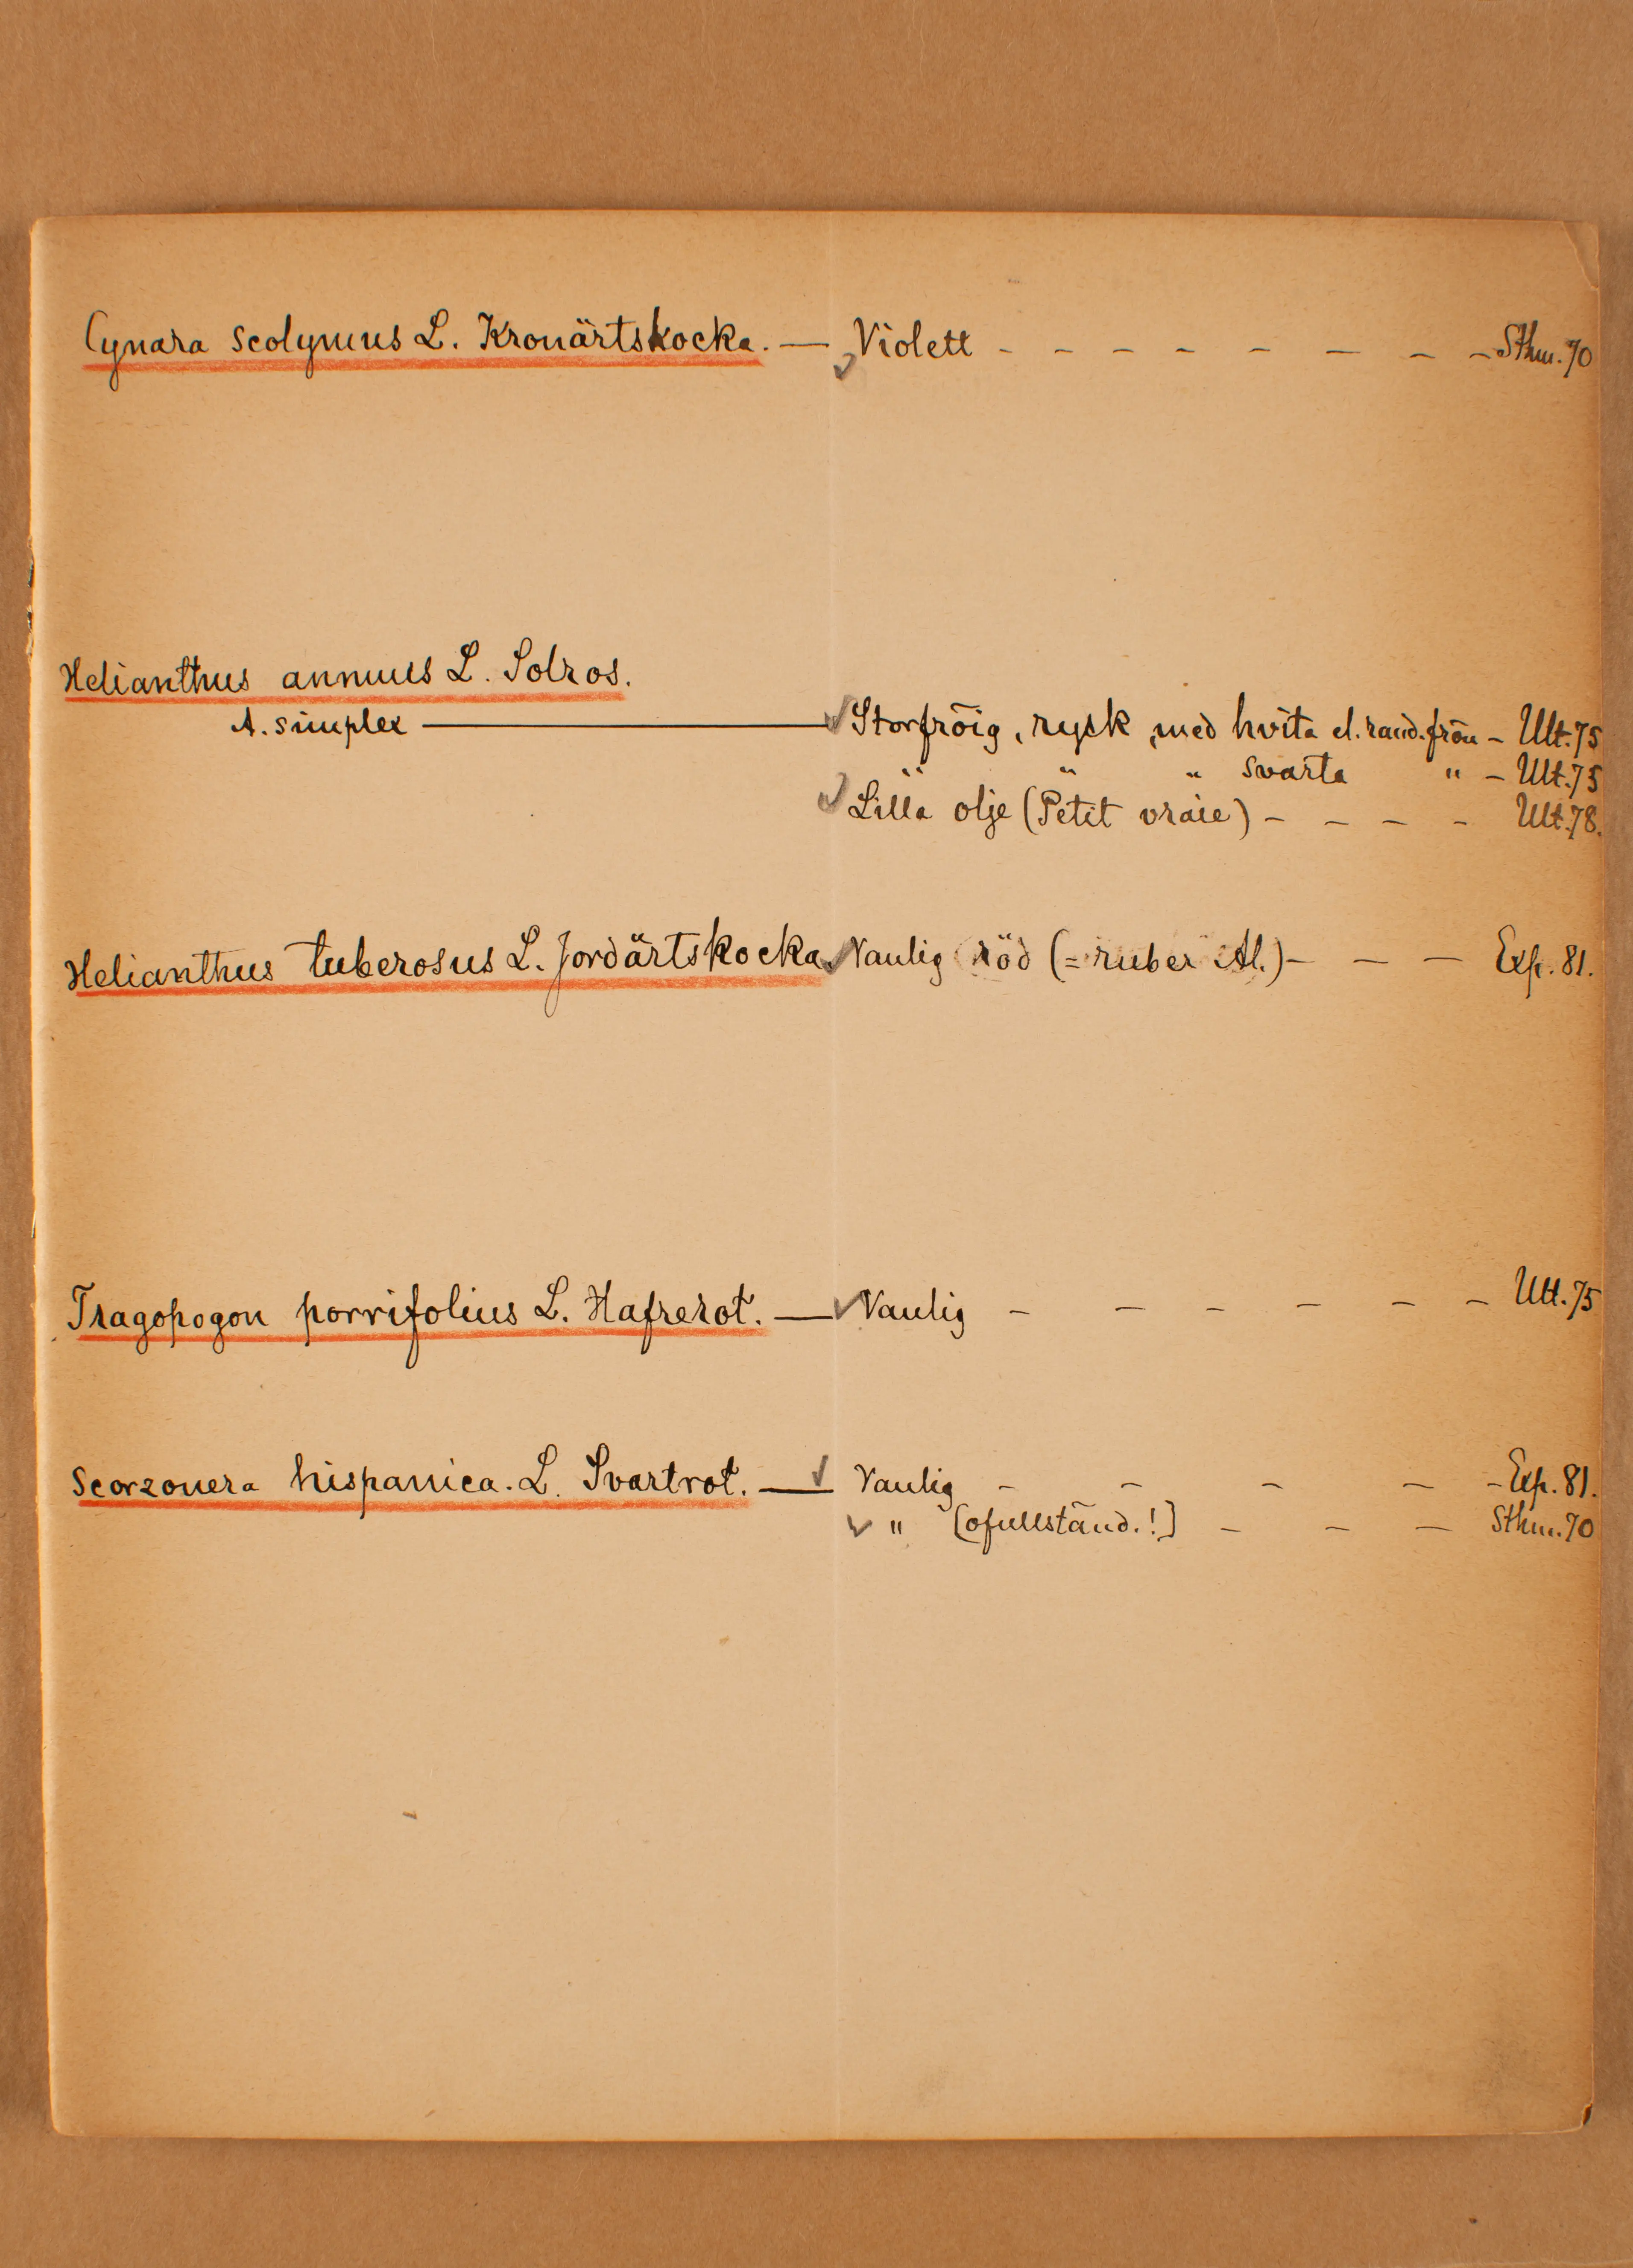 Cynara Scolymus L. Kronärtskocka. — Violett - - - - - - - - - Sthm. 70
Helianthus annuus L. Solros.
A. simplex — Storfröig, rysk, med hvita el. rand. frön - Ult. 75
" " " svarta " - Ult. 75
Lilla olje (Petit vraie) - - - - Ult. 78.
Helianthus tuberosus L. Jordärtskocka Vanlig röd (= ruber Al.) - - - Exp. 81.
Tragopogon porrifolius L. Hafrerot. — Vanlig - - - - - - - Ult. 75
Scorzonera hispanica. L. Svartrot. — Vanlig - - - - - Exp. 81.
" [ofullständ.!] - - - Sthm. 70